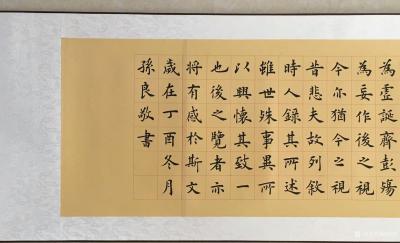 為虛誕齊彭殤
為妄作後之視
今亦猶今之視
昔悲夫故列敘
時人録其所述
雖世殊事異所
以興懷其致一
也後之覽者亦
將有感於斯文
歲在丁酉冬月
孫良敬書